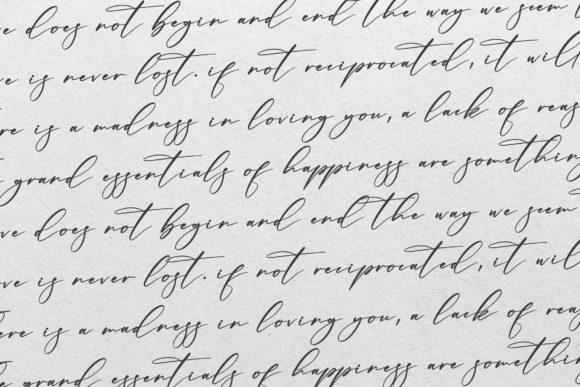 ve does not begin and end the way we seem t
ve is never lost. if not reciprocated, it will
ere is a madness in loving you, a lack of reas
grand essentials of happiness are something
ve does not begin and end the way we seem t
ove is never lost. if not reciprocated, it will
here is a madness in loving you, a lack of reas
grand essentials of happiness are something